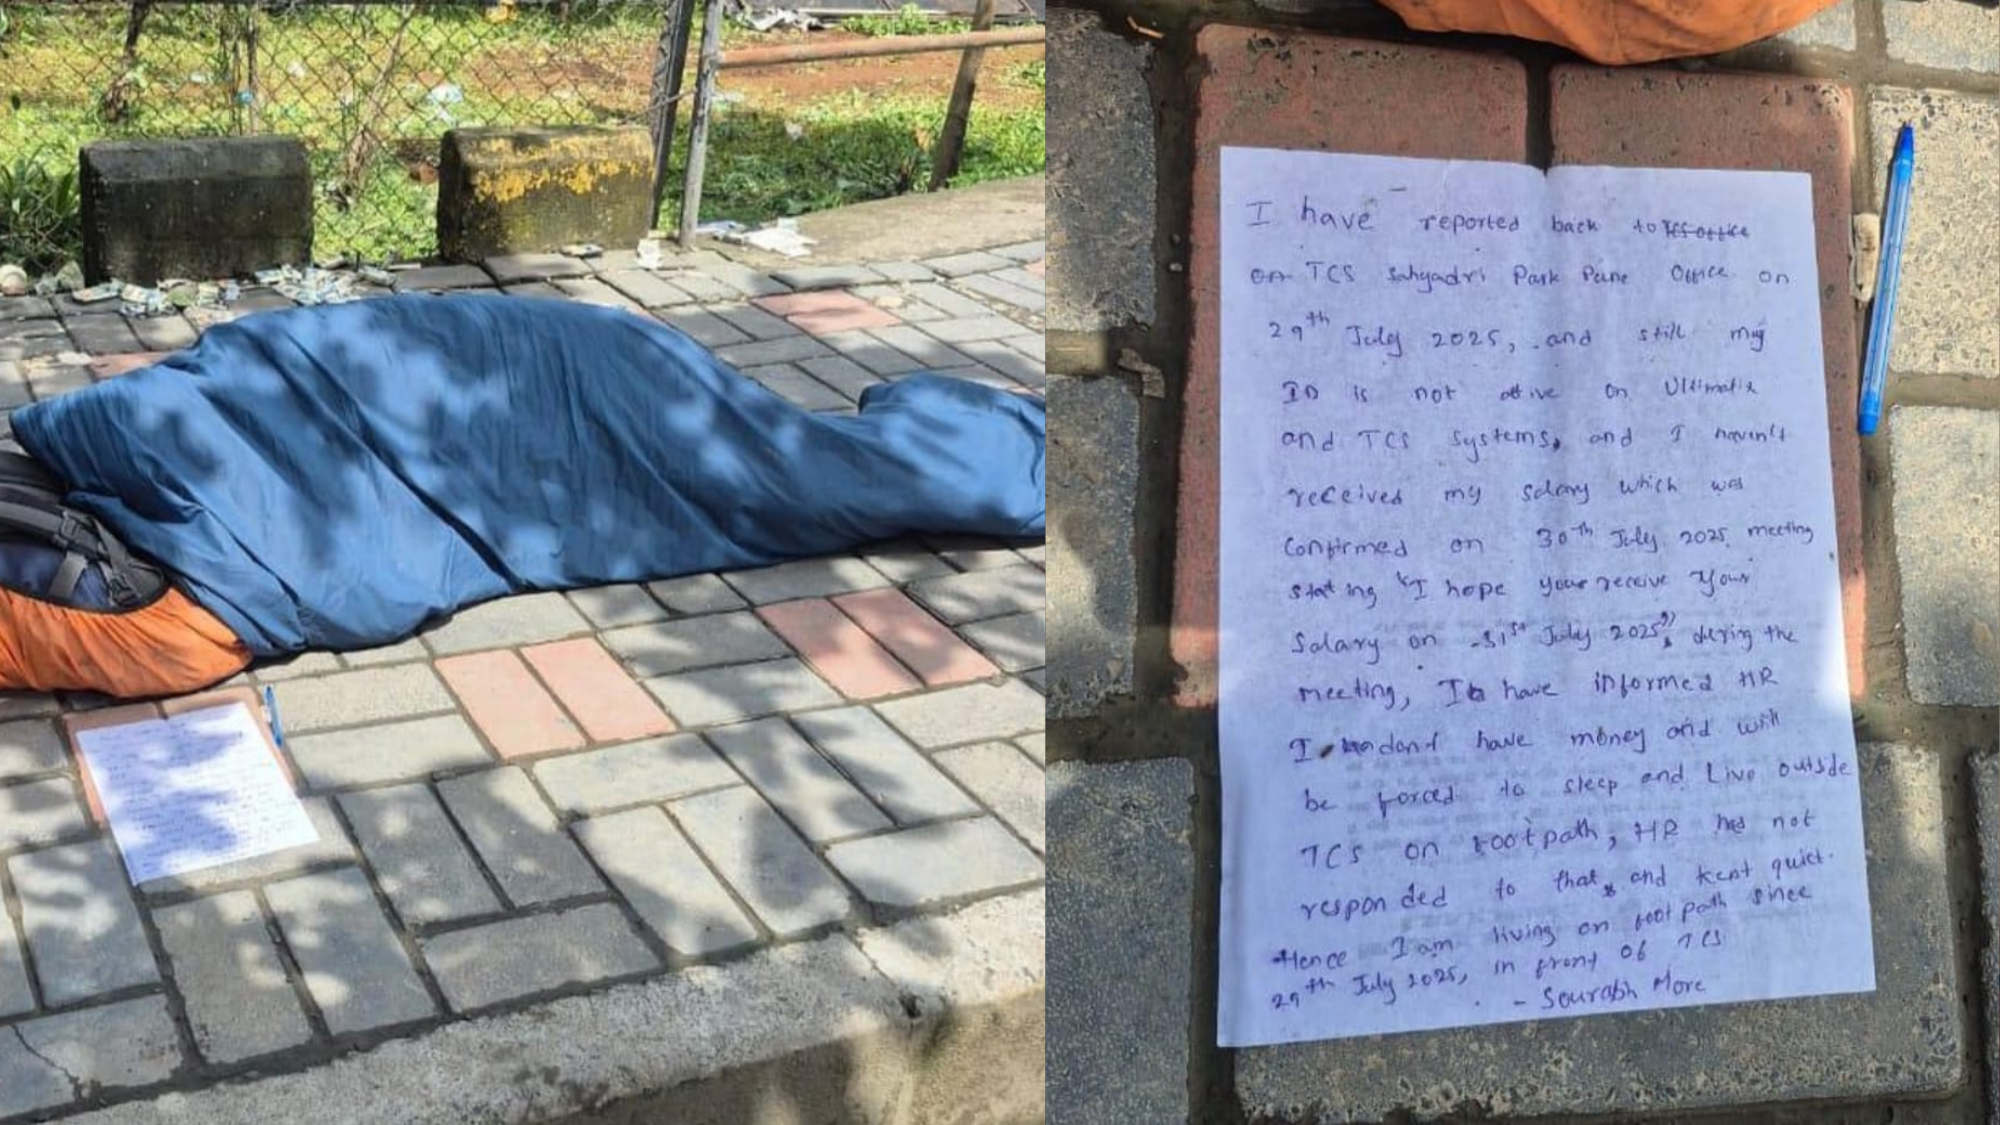 I have reported back to TCS office
on TCS Sahyadri Park Pune Office on
29th July 2025, and still my
ID is not active on Ultimatix
and TCS systems, and I haven't
received my salary which was
Confirmed on 30th July 2025 meeting
stating "I hope your receive your
Salary on 31st July 2025", during the
meeting, I have informed HR
I dont have money and will
be forced to sleep and Live outside
TCS on footpath, HR has not
responded to that, and kept quiet.
Hence I am living on footpath since
29th July 2025, in front of TCS
- Sourabh More